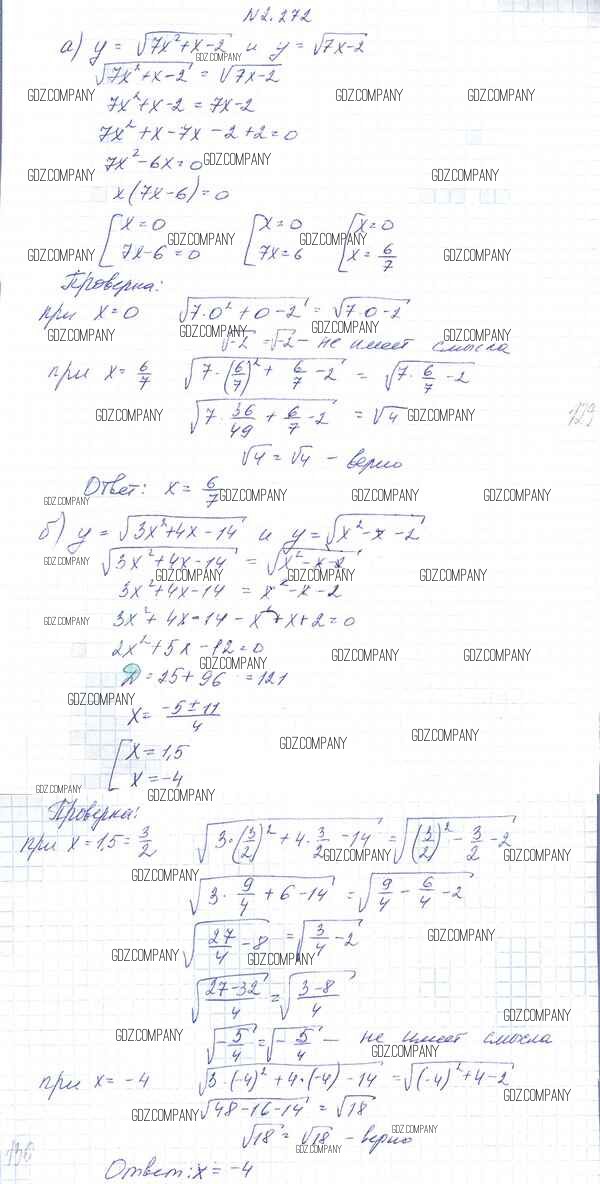 N 2.272
а) y = √(7x²+x-2) и y = √(7x-2)
√(7x²+x-2) = √(7x-2)
7x²+x-2 = 7x-2
7x²+x-7x-2+2=0
7x²-6x=0
x(7x-6)=0
[x=0 [x=0 [x=0
7x-6=0 7x=6 x=6/7
Проверка:
при x=0 √(7·0²+0-2) = √(7·0-2)
√-2 = √-2 - не имеет смысла
при x=6/7 √(7·(6/7)²+6/7-2) = √(7·6/7-2)
√(7·36/49+6/7-2) = √4
√4 = √4 - верно
Ответ: x = 6/7
б) y = √(3x²+4x-14) и y = √(x²-x-2)
√(3x²+4x-14) = √(x²-x-2)
3x²+4x-14 = x²-x-2
3x²+4x-14-x²+x+2=0
2x²+5x-12=0
D=25+96=121
x= (-5±11)/4
[x=1,5
x=-4
Проверка:
при x=1,5=3/2 √(3·(3/2)²+4·3/2-14) = √((3/2)²-3/2-2)
√(3·9/4+6-14) = √(9/4-6/4-2)
√(27/4-8) = √(3/4-2)
√((27-32)/4) = √((3-8)/4)
√(-5/4) = √(-5/4) - не имеет смысла
при x=-4 √(3·(-4)²+4·(-4)-14) = √((-4)²+4-2)
√(48-16-14) = √18
√18 = √18 - верно
Ответ: x = -4
GDZ.COMPANY